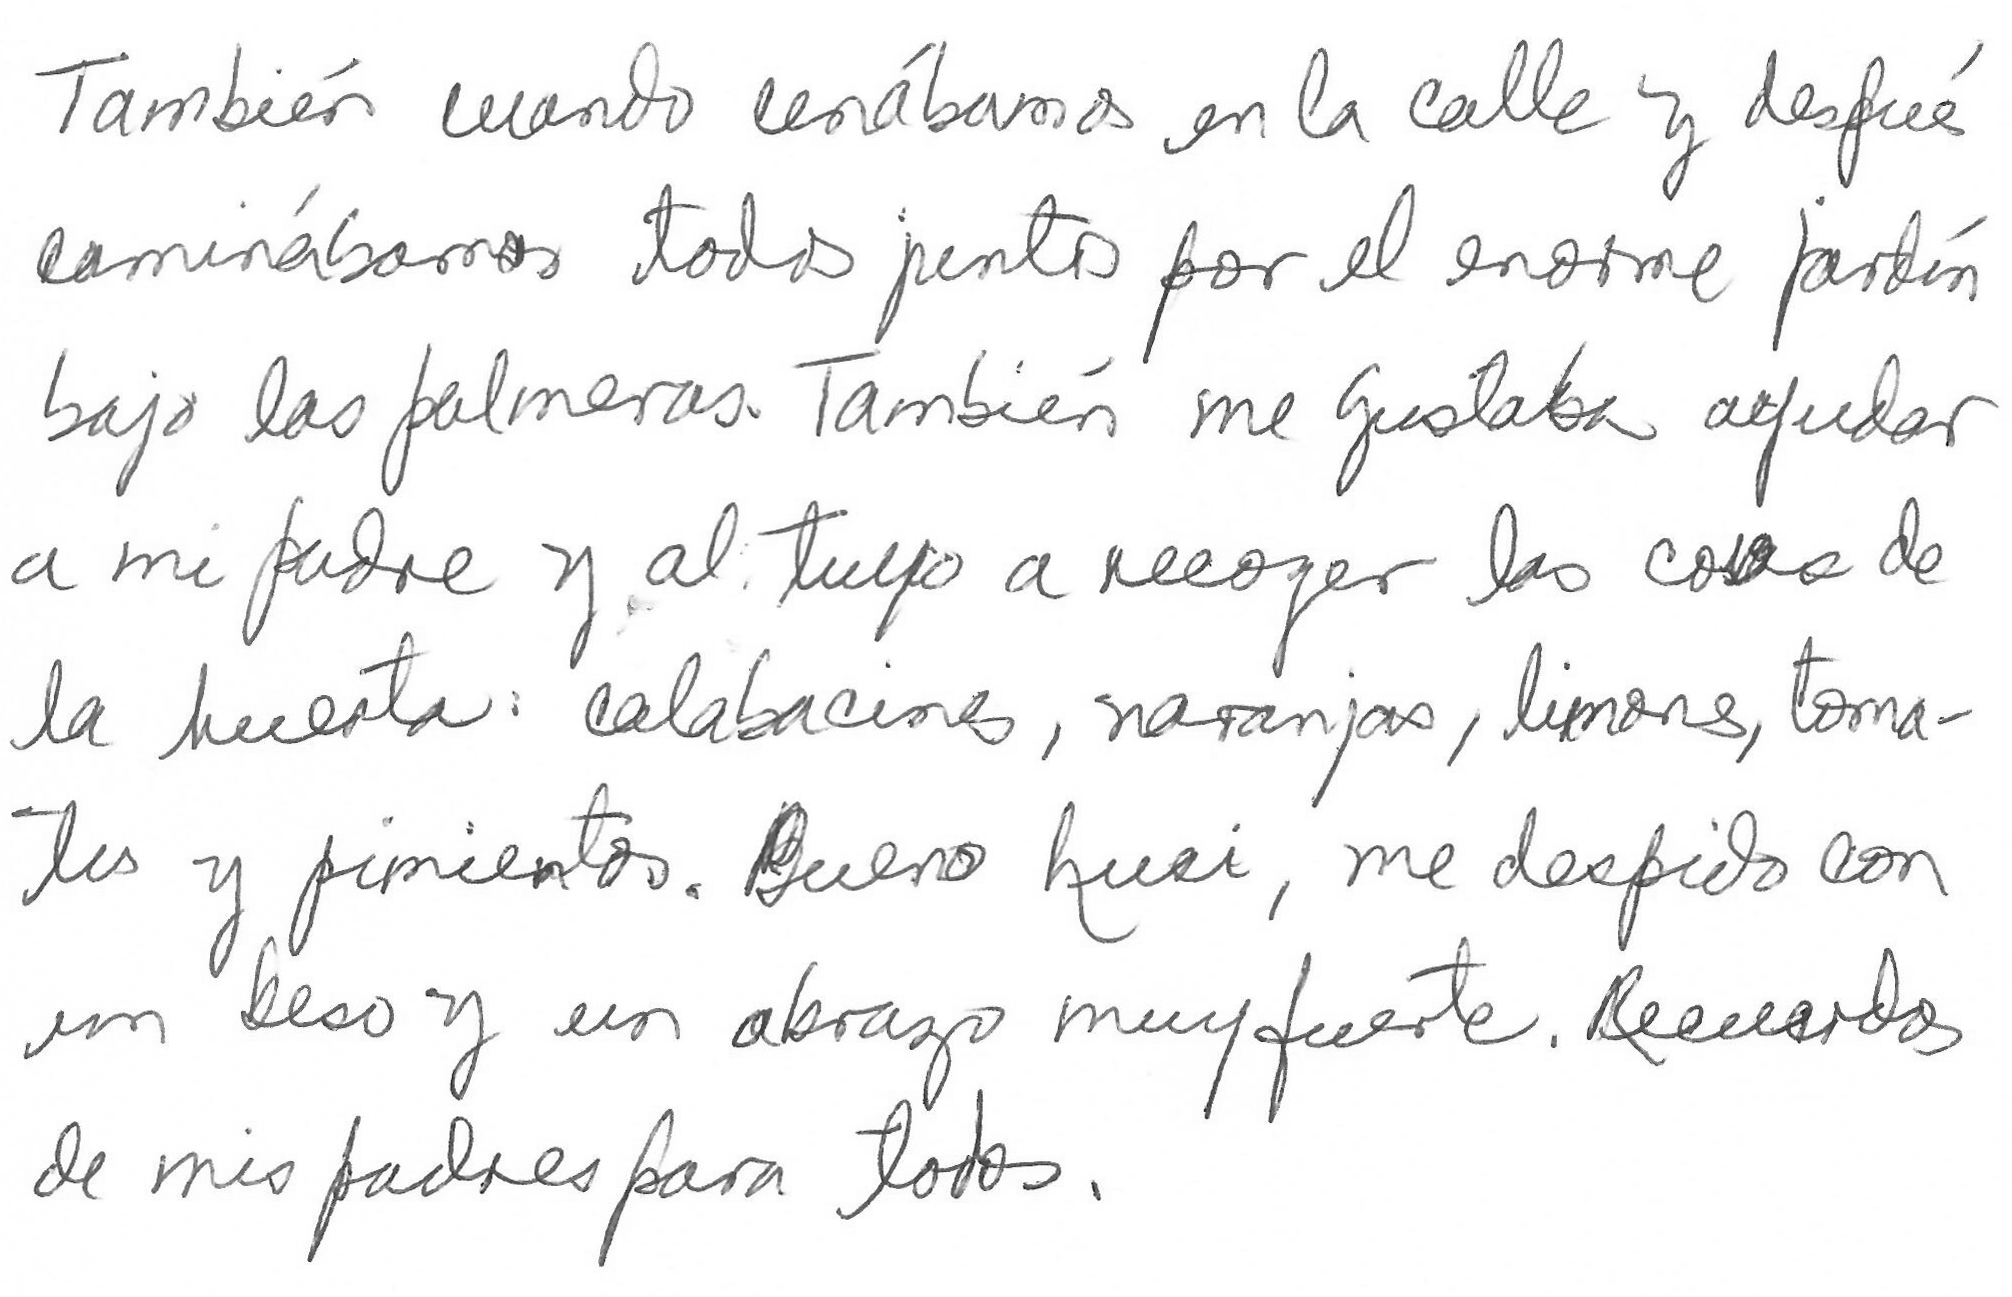 También cuando cenábamos en la calle y despué
caminábamos todos juntos por el enorme jardín
bajo las palmeras. También me gustaba ayudar
a mi padre y al tuyo a recoger las cosas de
la huerta: calabacines, naranjas, limones, toma-
tes y pimientos. Bueno Luci, me despido con
un beso y un abrazo muy fuerte. Recuerdos
de mis padres para todos.